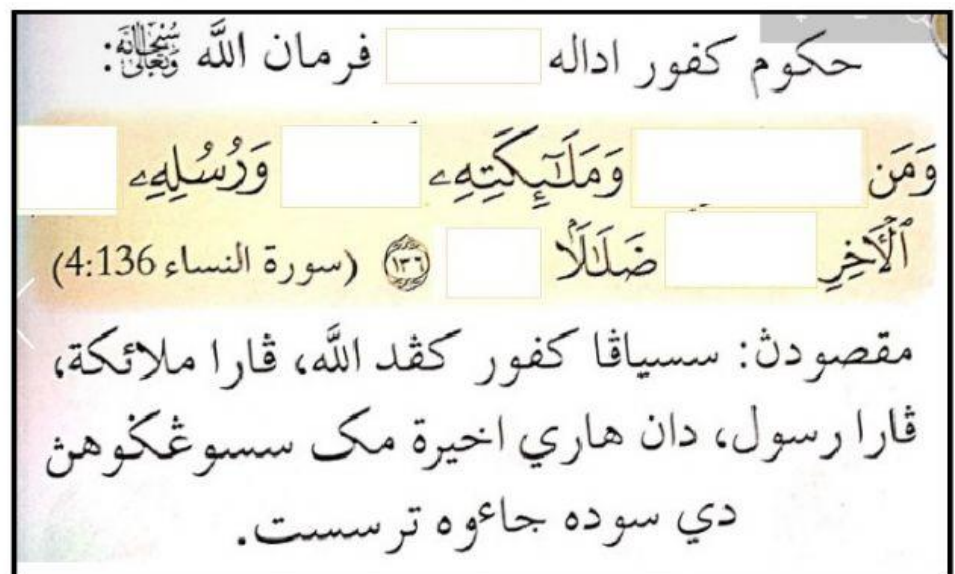 حكوم كفور اداله فرمان الله سُبْحَانَهُ وَتَعَالَىٰ:
وَمَن وَمَلَٰٓئِكَتِهِۦ وَرُسُلِهِۦ
ٱلْأَخِرِ ضَلَٰلَۢا ١٣٦ (سورة النساء 4:136)
مقصودڽ: سسياڤا كفور كڤد اللّٰه، ڤارا ملائكة،
ڤارا رسول، دان هاري اخيرة مک سسوڠݢوهڽ
دي سوده جاءوه ترسست.